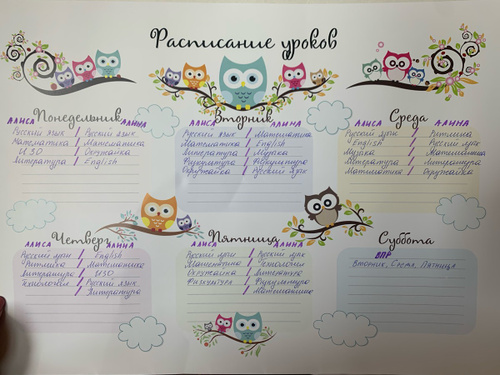 Расписание уроков
Понедельник
АЛИСА АЛИНА
Русский язык / Русский язык
Математика / Математика
ИЗО / Окружайка
Литература / English
Вторник
АЛИСА АЛИНА
Русский язык / Математика
Математика / English
Литература / Музыка
Физкультура / Физкультура
Окружайка / Русский язык
Среда
АЛИСА АЛИНА
Русский язык
English / Русский язык
Музыка / Математика
Литература / Литература
Математика / Окружайка
Четверг
АЛИСА АЛИНА
Русский язык / English
Математика
Литература / ИЗО
Технология / Русский язык
/ Литература
Пятница
АЛИСА АЛИНА
Русский язык / Русский язык
Математика / Технология
Окружайка / Литература
Физкультура / Физкультура
/ Математика
Суббота
ВПР
Вторник, Среда, Пятница